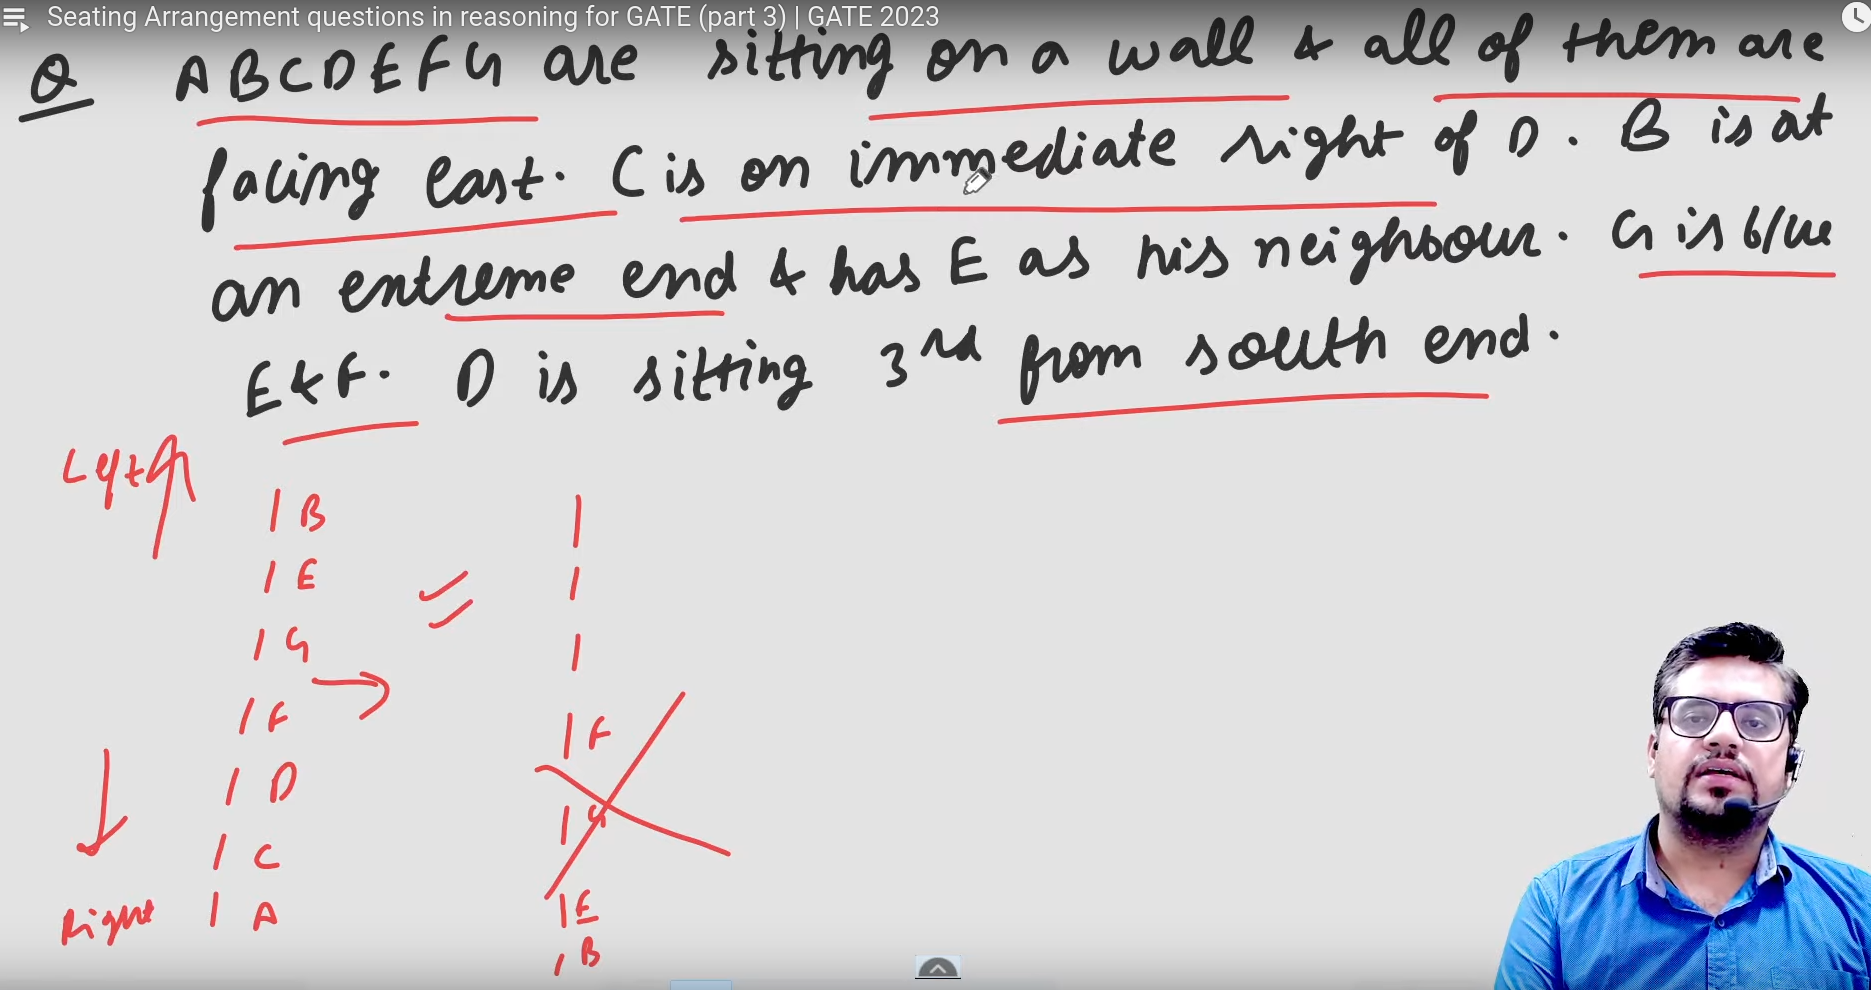 Seating Arrangement questions in reasoning for GATE (part 3) | GATE 2023
Q A B C D E F G are sitting on a wall & all of them are
facing east. C is on immediate right of D. B is at
an entreme end & has E as his neighbour. G is b/w
E & F. D is sitting 3rd from south end.
Left
B
E
G
F
D
C
Right A
F
G
E
B